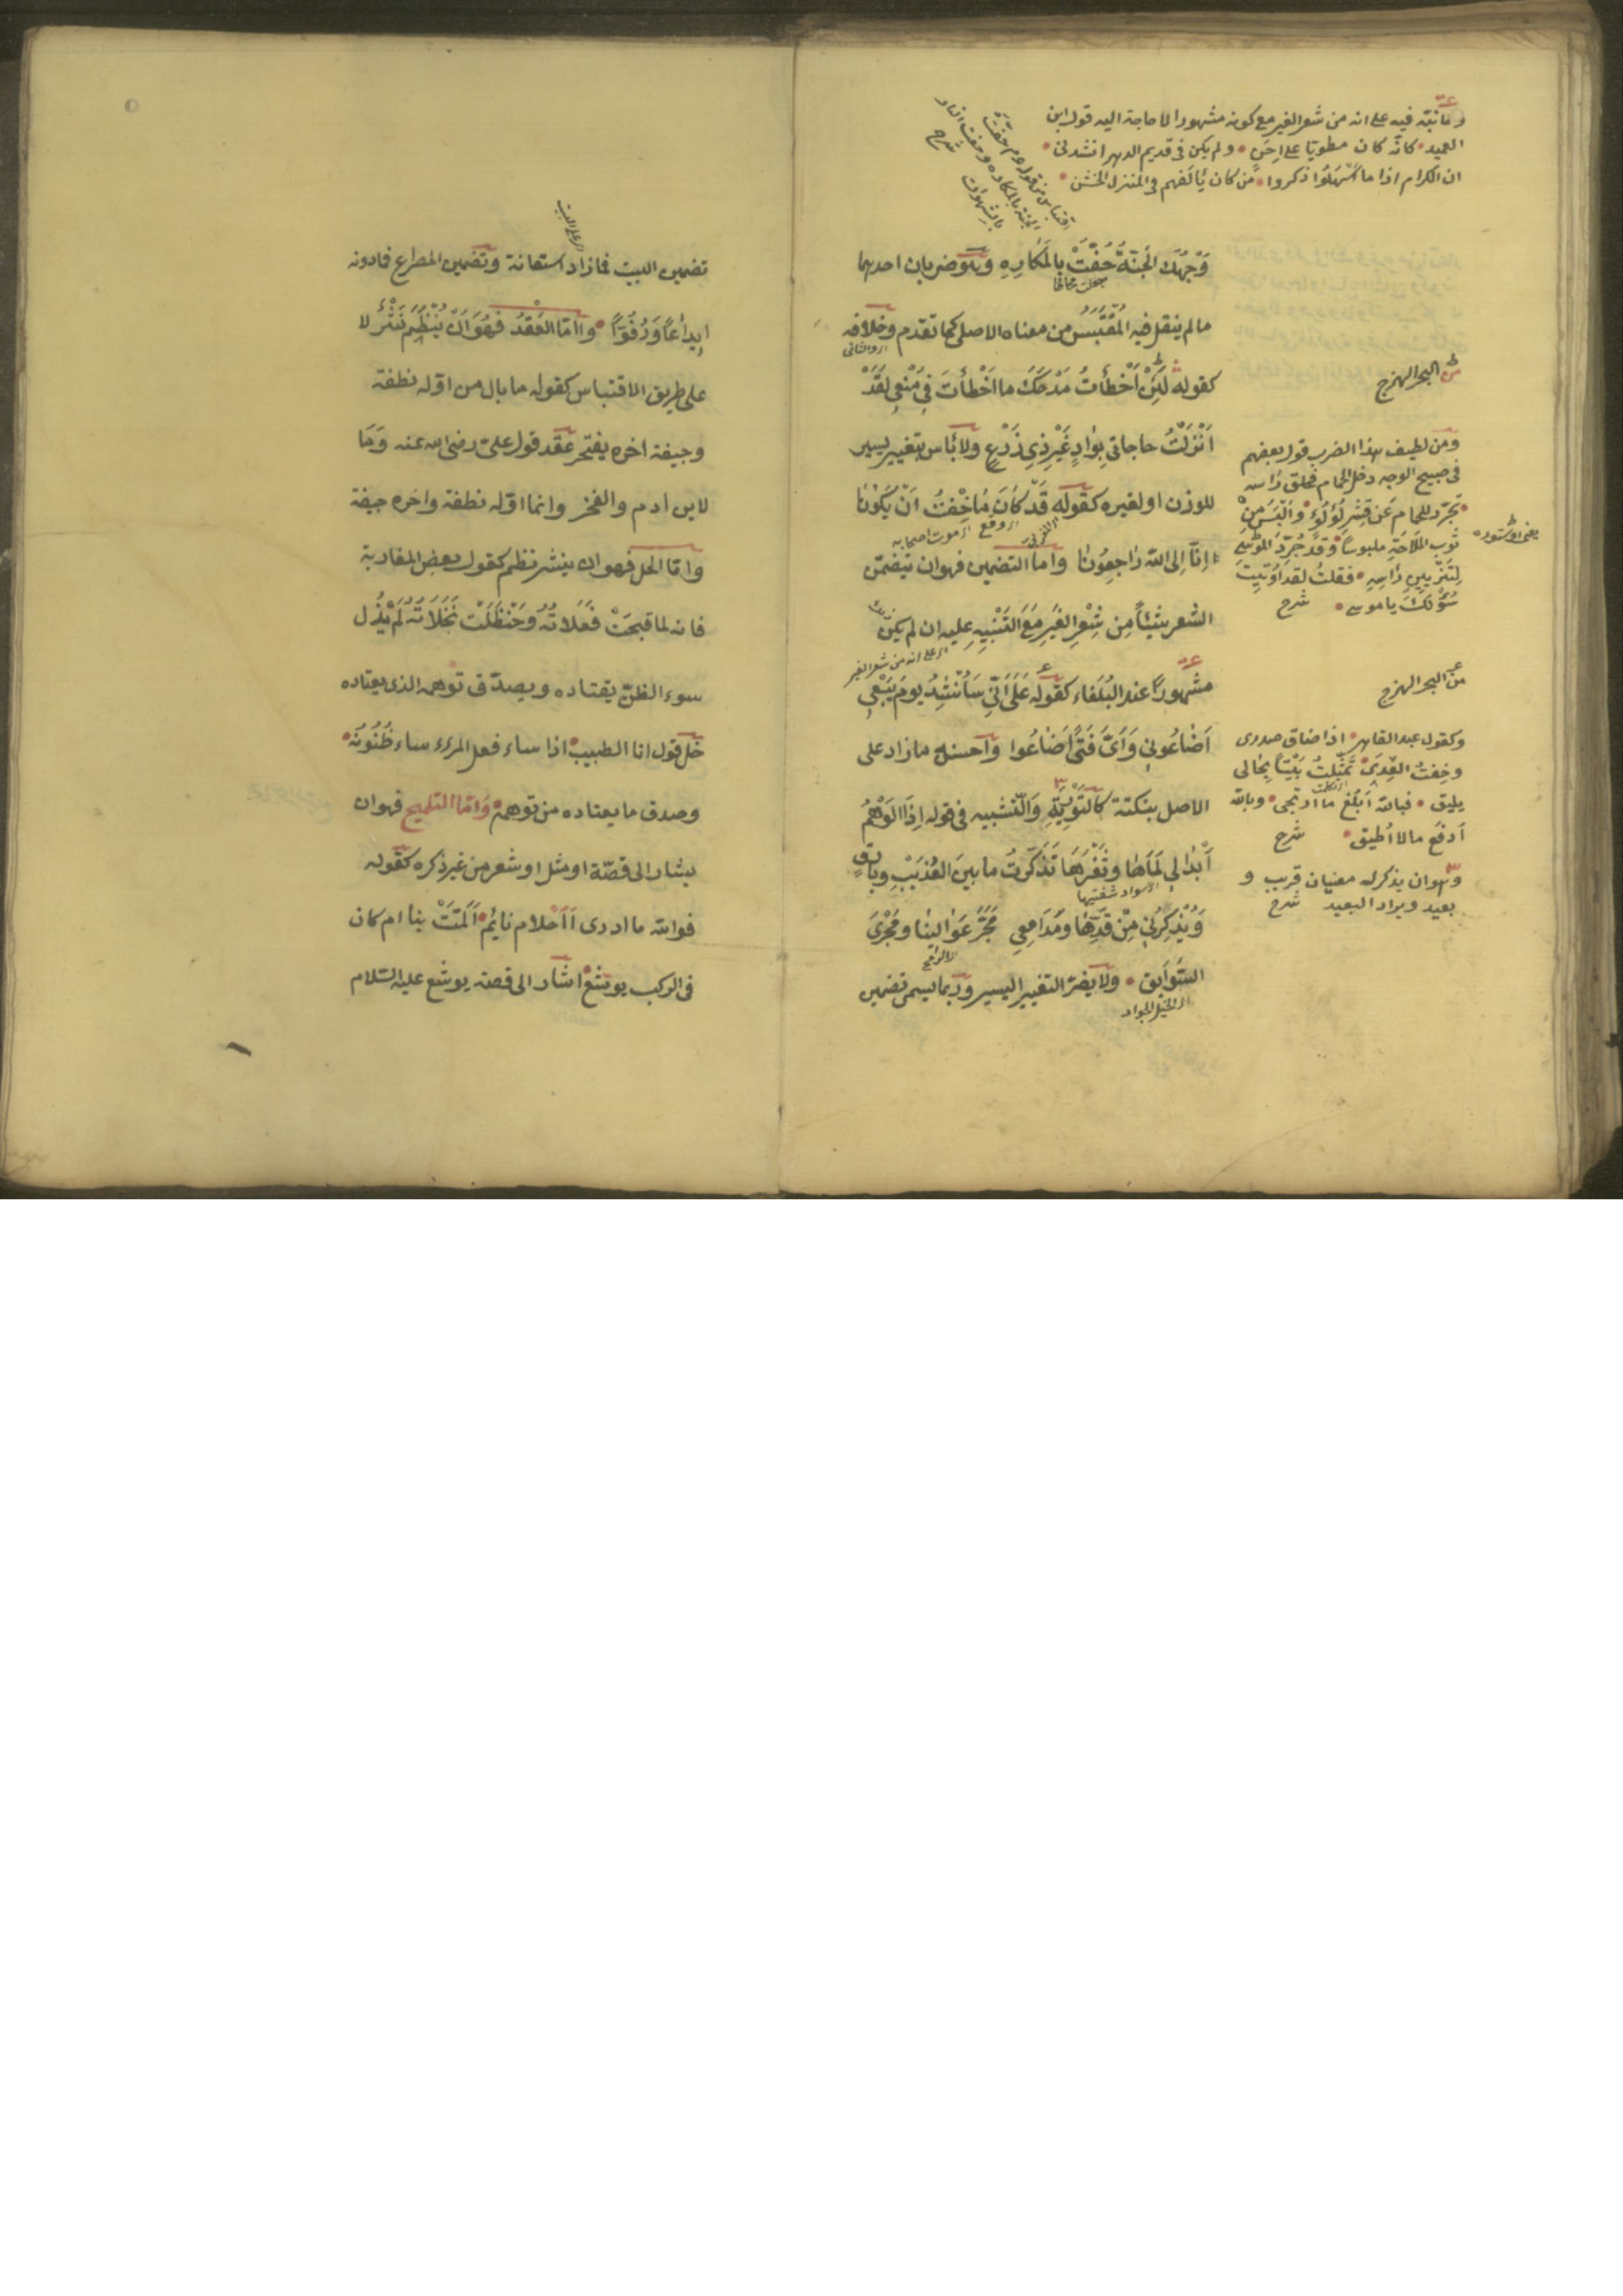 ومما نبّه فيه على انه من شعر الغير مع كونه مشهورا لا حاجة اليه قول ابن
العميد • كانّه كان مطويّا على اِحَنٍ • ولم يكن فى قديم الدهر انشدنى •
ان الكرام اذا ما اَسْهَلُوا ذكروا • من كان يَألَفهم فى المنزل الخشن •
اقتباس من قوله عم حُفّت
الجنة بالمكاره وحفت النار
بالشهوات شرح
وَجْهُكَ الجَنّةُ حُفَّتْ بِالمَكَارِهِ وهو ضربان احدهما
ما لم ينقل فيه المُقْتَبَسُ من معناه الاصلى كما تقدم وخلافه
اى والثانى
كقوله لَئِنْ اَخْطَأتُ مَدْحَكَ ما اَخْطَأتَ فِى مَنْعِى لَقَدْ
اَنْزَلْتُ حاجاتى بِوادٍ غَيْرِ ذِى زَرْعٍ ولا بأس بتغيير يسير
للوزن او لغيره كقوله قَدْ كَانَ مَا خِفْتُ اَنْ يَكُونَا
اى وقع اى موت اصحابه
اِنّا اِلى اللّه رَاجِعُونا واما التضمين فهو ان يُضَمَّن
الشعر شيئاً مِن شِعْرِ الغَيرِ مَعَ التَنْبِيهِ عليه ان لم يكن
اى على انه من شعر الغير
مشهورًا عند البُلَغاء كقوله عَلَى اَنّى سَأُنْشِدُ يومَ بَيْعِى
اَضَاعُونِى وَاَىَّ فَتىً اَضَاعُوا واحسنه ما زاد على
الاصل بنكتة كالتَوْرِيَةِ وَالتشبيه فى قوله اِذَا الوَهْمُ
اَبْدَا لِى لَمَاهَا وثَغْرَهَا تَذَكّرتُ ما بينَ العُذَيْبِ وبَارقٍ
اى سواد شفتيها
وَيُذْكِرُنِى مِنْ قَدِّهَا ومَدَامِعِى مَجَرَّ عَوَالِينَا ومَجْرَى
اى الرامح
السَّوَابِقِ • ولا يضرّ التغيير اليسير وربما يسمى تضمين
اى الخيل الجواد
من البحر الهزج
ومن لطيف هذا الضرب قول بعضهم
فى صبيح الوجه دخل الحمام فحلق رأسه
• تجَرّد للحمام عَن قِشرِ لُؤلُؤ • والْبَسَ مِنْ
ثوب المَلَاحَةِ ملبوساً • وقد جُرِّدَ المُوسَى
لِتَزْيِينِ رَأسِهِ • فقلتُ لقد اُوتِيتَ
سُؤْلَكَ يا موسى • شرح
من البحر الهزج
وكقول عبد القاهر • اذا ضاق صدرى
وخِفتُ العِدَى • تَمَثّلتُ بَيْتاً بِحَالى
يليق • فبالله اَبْلُغ ما ارتجى • وبالله
اَدفَع ما لا اُطيق • شرح
وهو ان يذكر له معنيان قريب و
بعيد ويراد البعيد شرح
اى على البيت
تضمين البيت فما زاد استعانة وتضمين المصراع فما دونه
اِيداعًا وَرُفُوّاً • واما العَقْدُ فهُوَ اَنْ يُنْظَمَ نَثْرٌ لا
على طريق الاقتباس كقوله ما بال من اوّله نطفة
وجيفة اخره يفتخر عقد قول علىّ رضى الله عنه وَمَا
لابن ادم والفخر وانما اوّله نطفة واخره جيفة
وامّا الحل فهو ان ينشر نظم كقول بعض المغاربة
فانه لما قبحَتْ فَعَلاتُهُ وَحَنْظَلَتْ نَخَلاَتُهُ لَمْ يَزَل
سوء الظنّ يقتاده ويصدّق توهمه الذى يعتاده
حَلّ قول ابا الطيب • اذا ساء فعل المرء ساء ظُنُونُه •
وصدق ما يعتاده من توهم • وَامّا التلميح فهو ان
يشار الى قصّة او مثل او شعر من غير ذكره كقوله
فوالله ما ادرى أأَحْلام نائم • اَلَمّتْ بنا ام كان
فى الركب يوشع • اشار الى قصة يوشع عليه السّلام